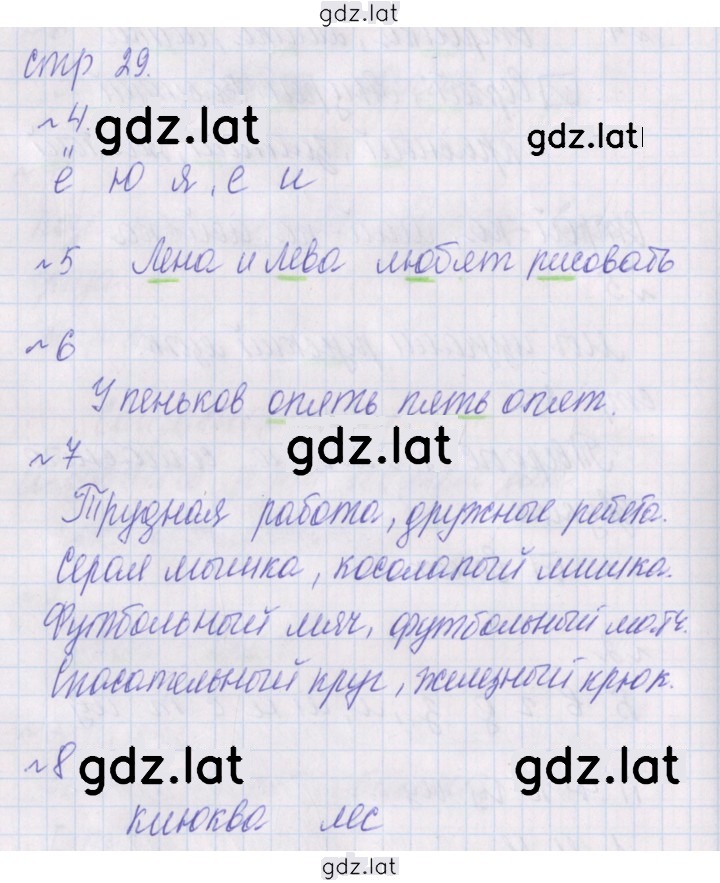 gdz.lat
стр 29.
№4. gdz.lat gdz.lat
ё ю я, е и
№5 Лена и Лева любят рисовать
№6
У пеньков опять пять опят.
gdz.lat
№7
Трудная работа, дружные ребета.
Серая мышка, косолапый мишка.
Футбольный мяч, футбольный матч.
Спасательный круг, железный крюк.
№8 gdz.lat gdz.lat
клюква лес
gdz.lat